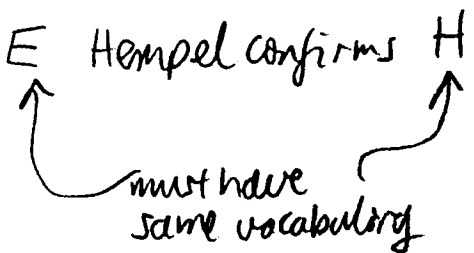 E Hempel confirms H
must have
same vocabulary